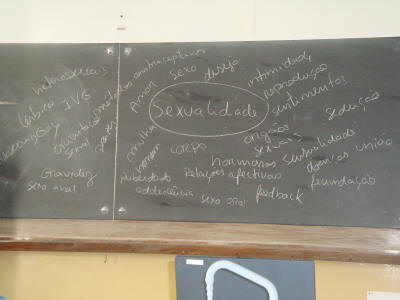 heterosexuais
métodos contraceptivos
sexo
desejo
intimidade
reprodução
Amor
sentimentos
sedução
IVG
Sexualidade
orientação
sexual
prazer
mulher
homem
corpo
órgãos
sexuais
sensualidade
união
hormonas
doenças
Gravidez
sexo anal
puberdade
Relações afectivas
fecundação
adolescência
sexo oral
feedback